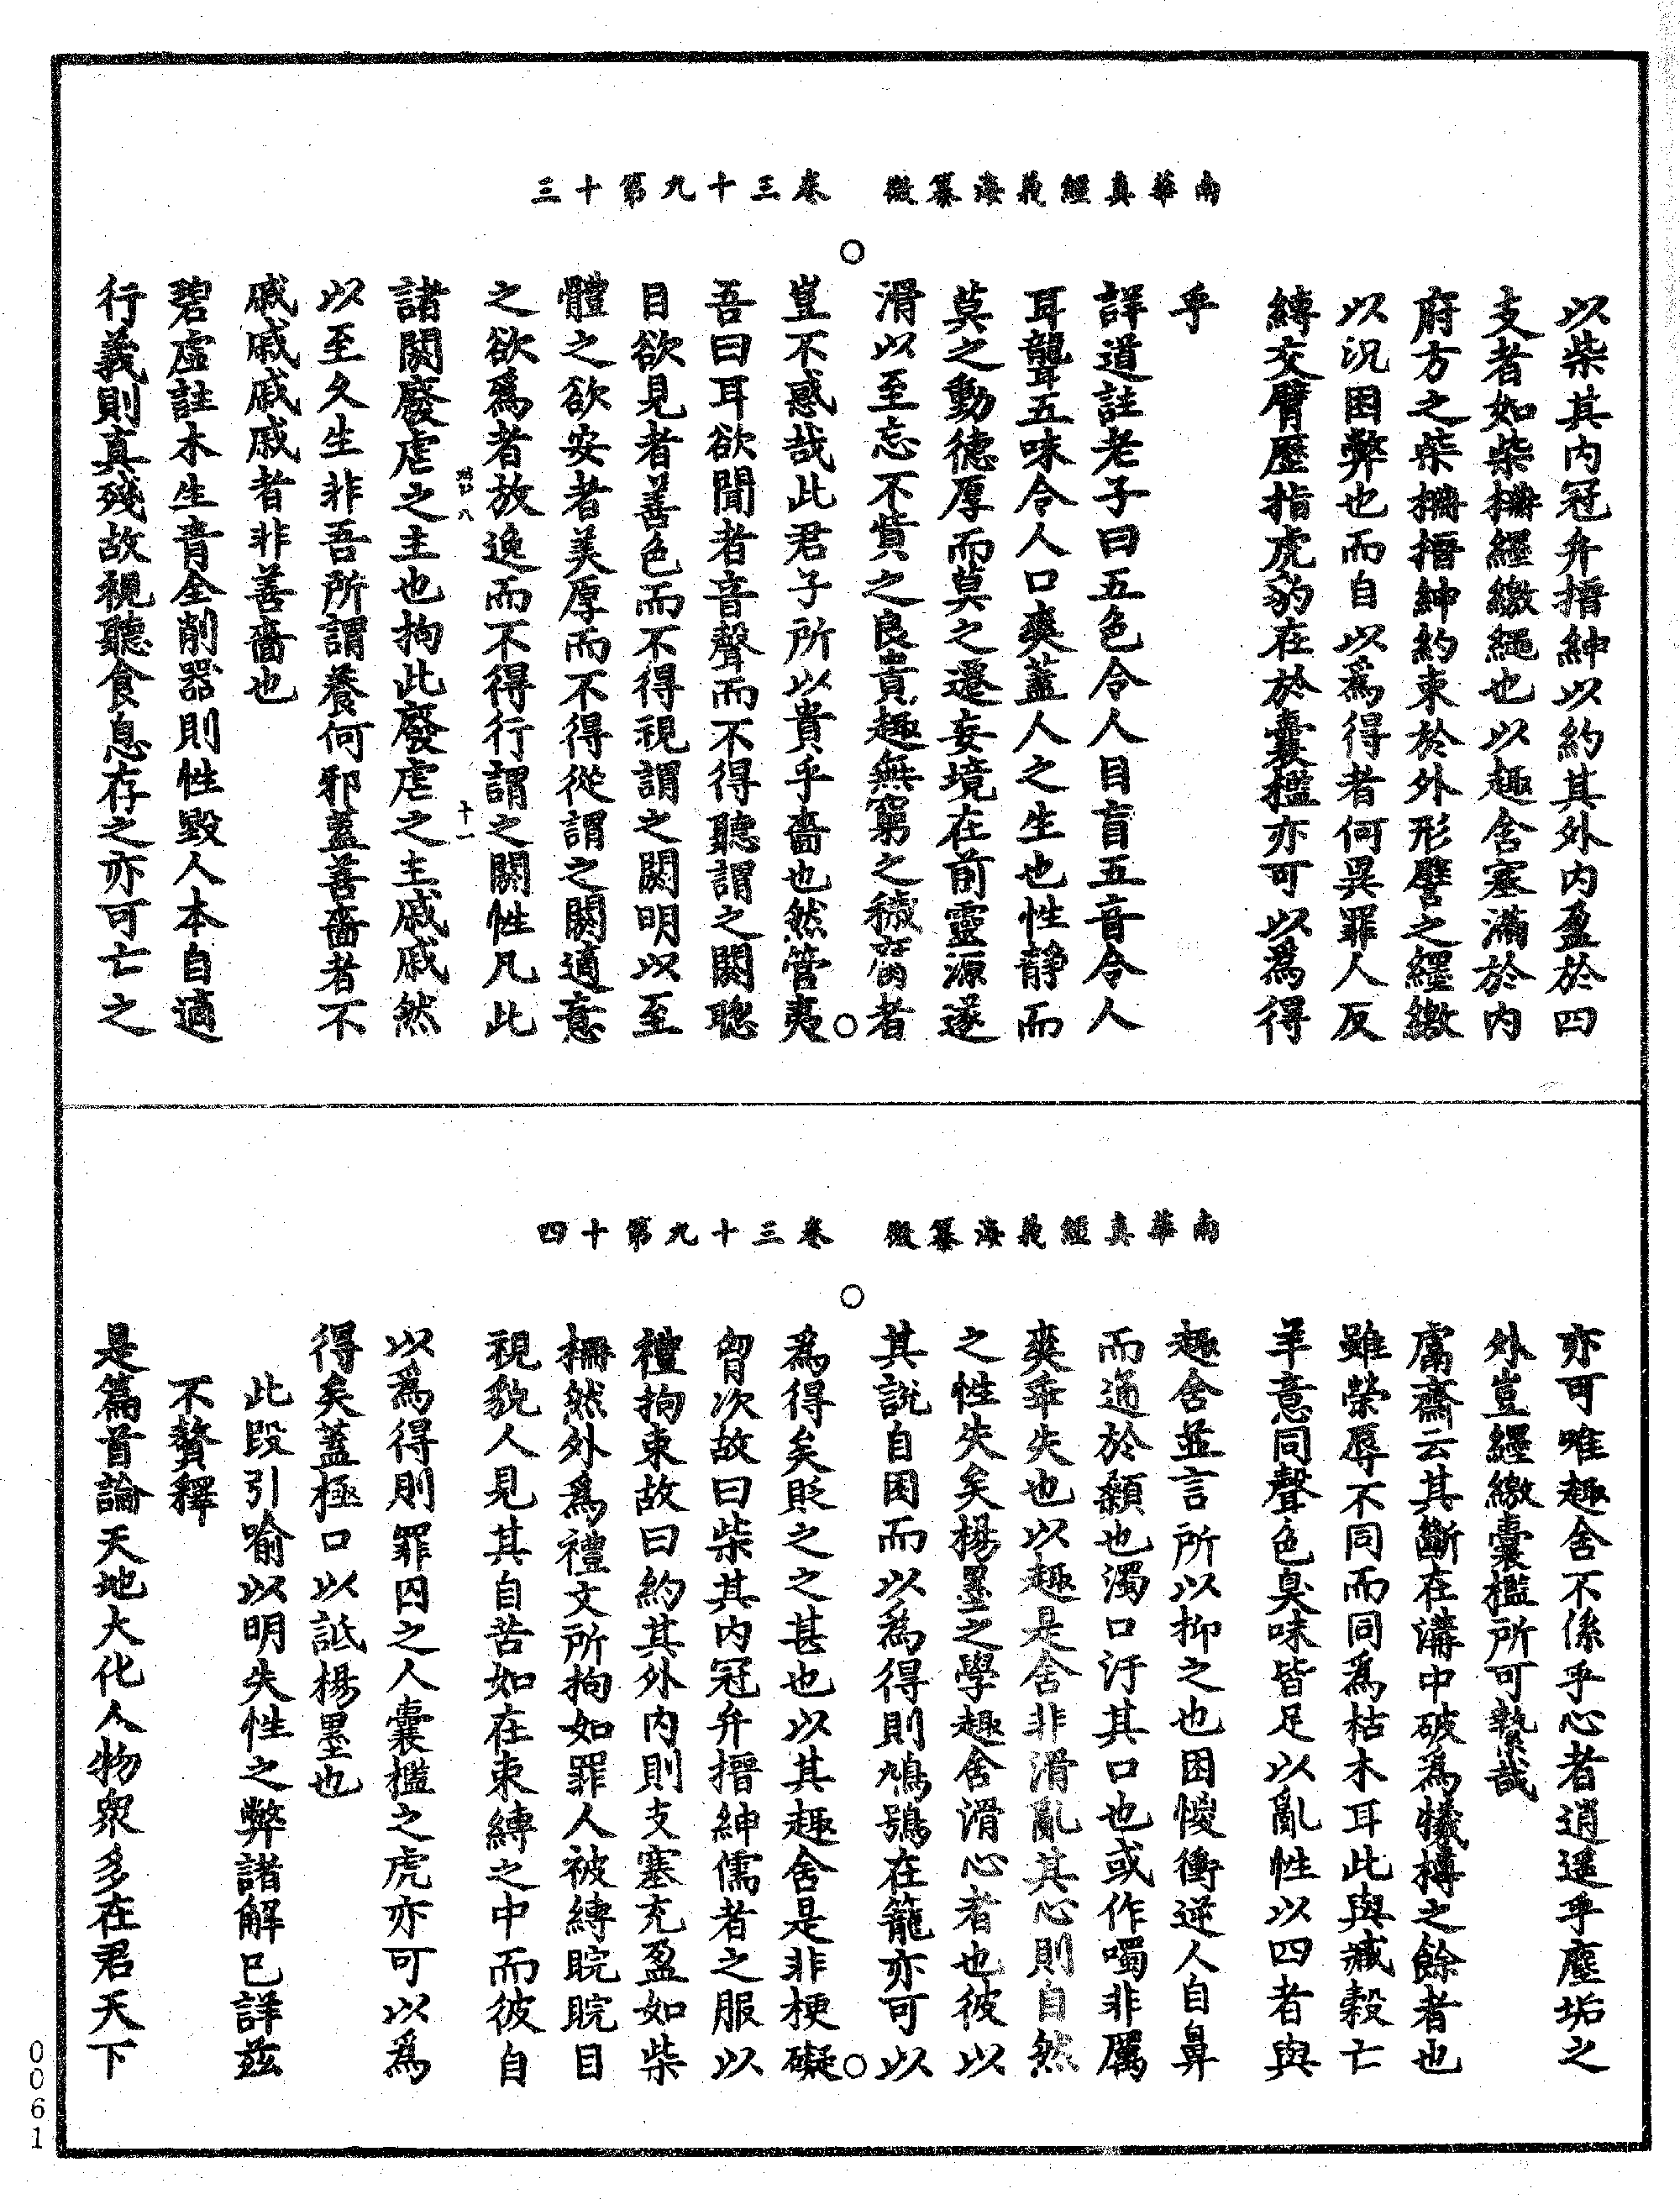 南華真經義海纂微　卷三十九第十三
以柴其內冠弁搢紳以約其外內盈於四
支者如柴柵纆繳繩也以趣舍塞滿於內
府方之柴柵搢紳約束於外形譬之纆繳
以況困弊也而自以爲得者何異罪人反
縛交臂歷指虎豹在於囊檻亦可以爲得
乎
詳道註老子曰五色令人目盲五音令人
耳聾五味令人口爽蓋人之生也性靜而
莫之動德厚而莫之遷妄境在前靈源遂
滑以至忘不貲之良貴趣無窮之穢腐者
豈不惑哉此君子所以貴乎嗇也然管夷
吾曰耳欲聞者音聲而不得聽謂之閼聰
目欲見者善色而不得視謂之閼明以至
體之欲安者美厚而不得從謂之閼適意
之欲爲者放逸而不得行謂之閼性凡此
十一
諸閼廢虐之主也拘此廢虐之主戚戚然
以至久生非吾所謂養何邪蓋善嗇者不
戚戚戚戚者非善嗇也
碧虛註木生音全削器則性毀人本自適
行義則真殘故視聽食息存之亦可亡之
南華真經義海纂微　卷三十九第十四
亦可唯趣舍不係乎心者逍遥乎塵垢之
外豈纆繳囊檻所可縶哉
鬳齋云其斷在溝中破爲犧樽之餘者也
雖榮辱不同而同爲枯木耳此與臧穀亡
羊意同聲色臭味皆足以亂性以四者與
趣舍並言所以抑之也困惾衝逆人自鼻
而通於顙也濁口汙其口也或作噣非厲
爽乖失也以趣是舍非滑亂其心則自然
之性失矣楊墨之學趣舍滑心者也彼以
其說自困而以爲得則鳩鴞在籠亦可以
爲得矣貶之之甚也以其趣舍是非梗礙
胷次故曰柴其內冠弁搢紳儒者之服以
禮拘束故曰約其外內則支塞充盈如柴
柵然外爲禮文所拘如罪人被縛睆睆目
視貌人見其自苦如在束縛之中而彼自
以爲得則罪囚之人囊檻之虎亦可以爲
得矣蓋極口以詆楊墨也
此段引喻以明失性之弊諸解已詳茲
不贅釋
是篇首論天地大化人物衆多在君天下
0061